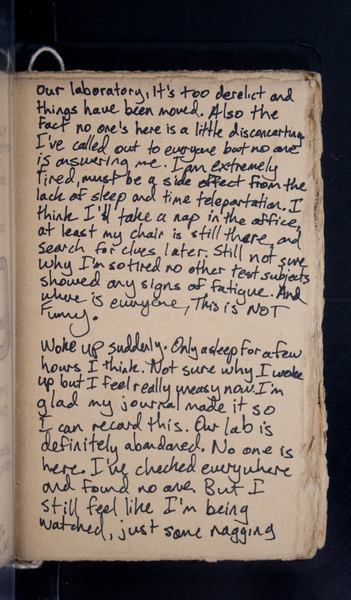 our laboratory, it's too derelict and
things have been moved. Also the
fact no one's here is a little discancerting
I've called out to everyone but no one
is answering me. I am extremely
tired, must be a side effect from the
lack of sleep and time teleportation. I
think I'll take a nap in the office,
at least my chair is still there, and
search for clues later. Still not sure
why I'm so tired no other test subjects
showed any signs of fatigue. And
where is everyone, This is NOT
Funny.
Woke up suddenly. Only asleep for a few
hours I think. Not sure why I woke
up but I feel really uneasy now. I'm
glad my journal made it so
I can record this. Our lab is
definitely abandoned. No one is
here. I've checked everywhere
and found no one. But I
still feel like I'm being
watched, just some nagging